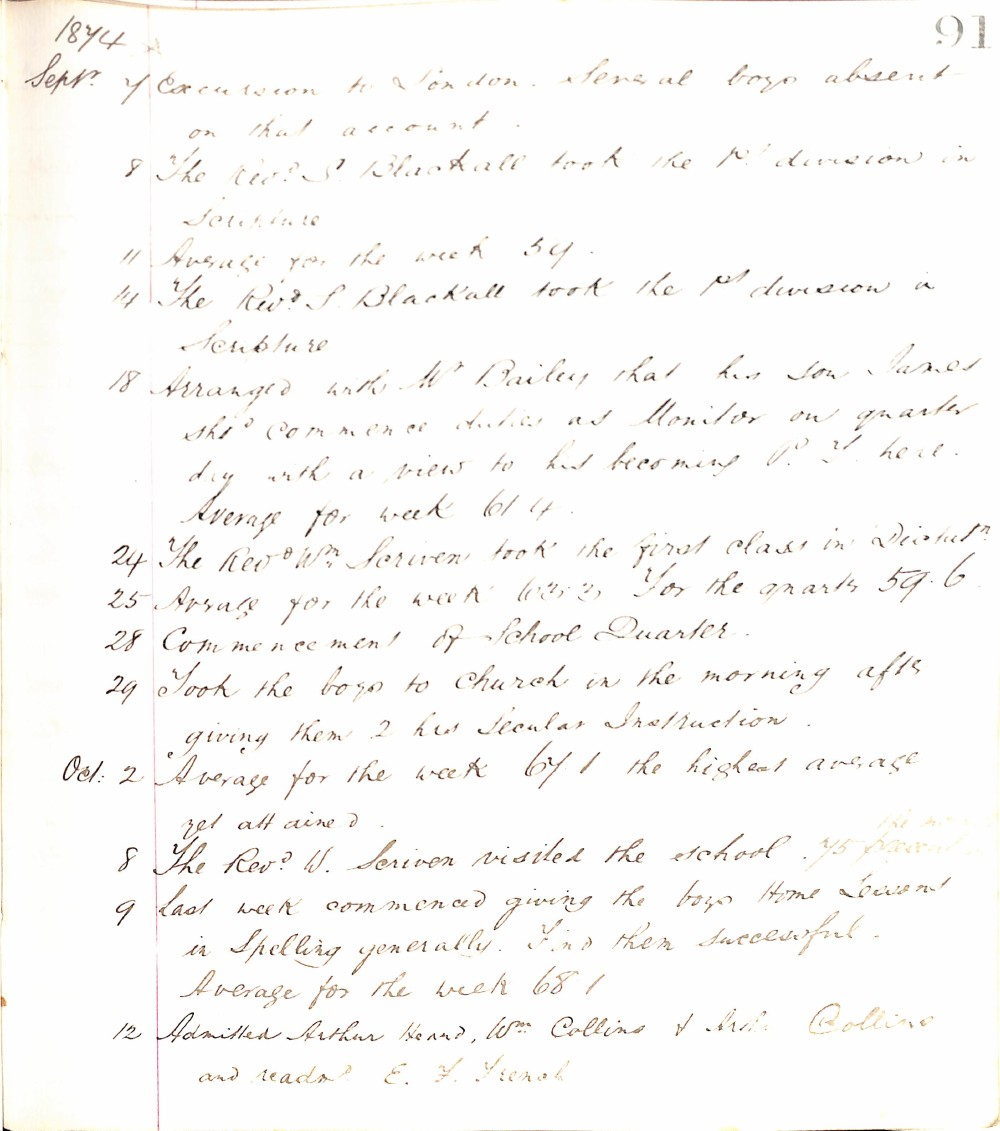 1874
91
Septr. 7 Excursion to London. Several boys absent
on that account.
8 The Revd. S. Blackall took the 1st division in
Scripture
11 Average for the week 59.
14 The Revd. S. Blackall took the 1st division in
Scripture
18 Arranged with Mr Bailey that his son James
shd commence duties as Monitor on quarter
day with a view to his becoming P. T. here.
Average for week 61.4.
24 The Revd Wm Scriven took the first class in Dictatn
25 Average for the week For the quarter 59.6
28 Commencement of School Quarter.
29 Took the boys to Church in the morning after
giving them 2 hrs Secular Instruction.
Oct: 2 Average for the week 67.1 the highest average
yet attained.
8 The Revd. W. Scriven visited the school. 75
9 Last week commenced giving the boys Home Lessons
in Spelling generally. Find them successful.
Average for the week 68.1
12 Admitted Arthur Wm Collins & Collins
and readmd. E. F. French